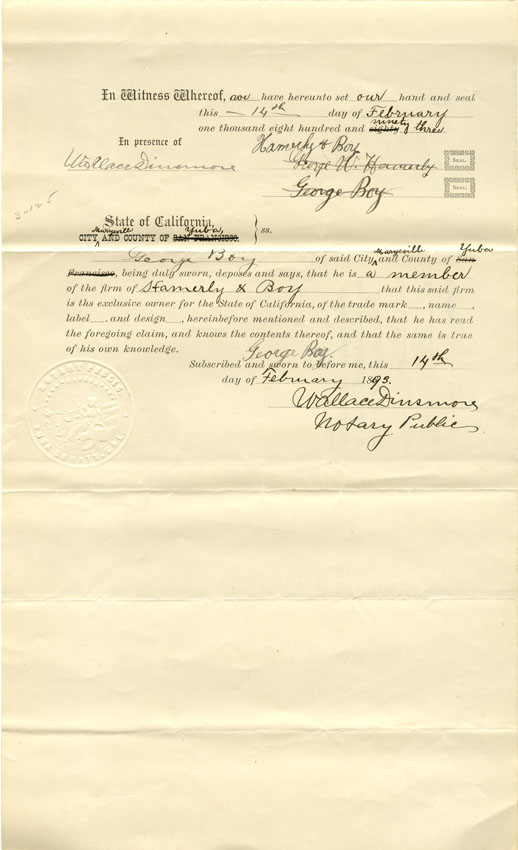 In Witness Whereof, we have hereunto set our hand and seal
this 14th day of February
one thousand eight hundred and eighty ninety three
In presence of
Hamerly & Boy
Wallace Dinsmore
George W. Hamerly SEAL.
George Boy SEAL.
3-125
State of California,
Marysville Yuba,
CITY AND COUNTY OF SAN FRANCISCO. ss.
George Boy of said City Marysville and County of San Yuba
Francisco, being duly sworn, deposes and says, that he is a member
of the firm of Hamerly & Boy that this said firm
is ths exclusive owner for the State of California, of the trade mark , name ,
label , and design , hereinbefore mentioned and described, that he has read
the foregoing claim, and knows the contents thereof, and that the same is true
of his own knowledge.
George Boy.
Subscribed and sworn to before me, this 14th
day of February 1893.
Wallace Dinsmore
Notary Public
NOTARY PUBLIC